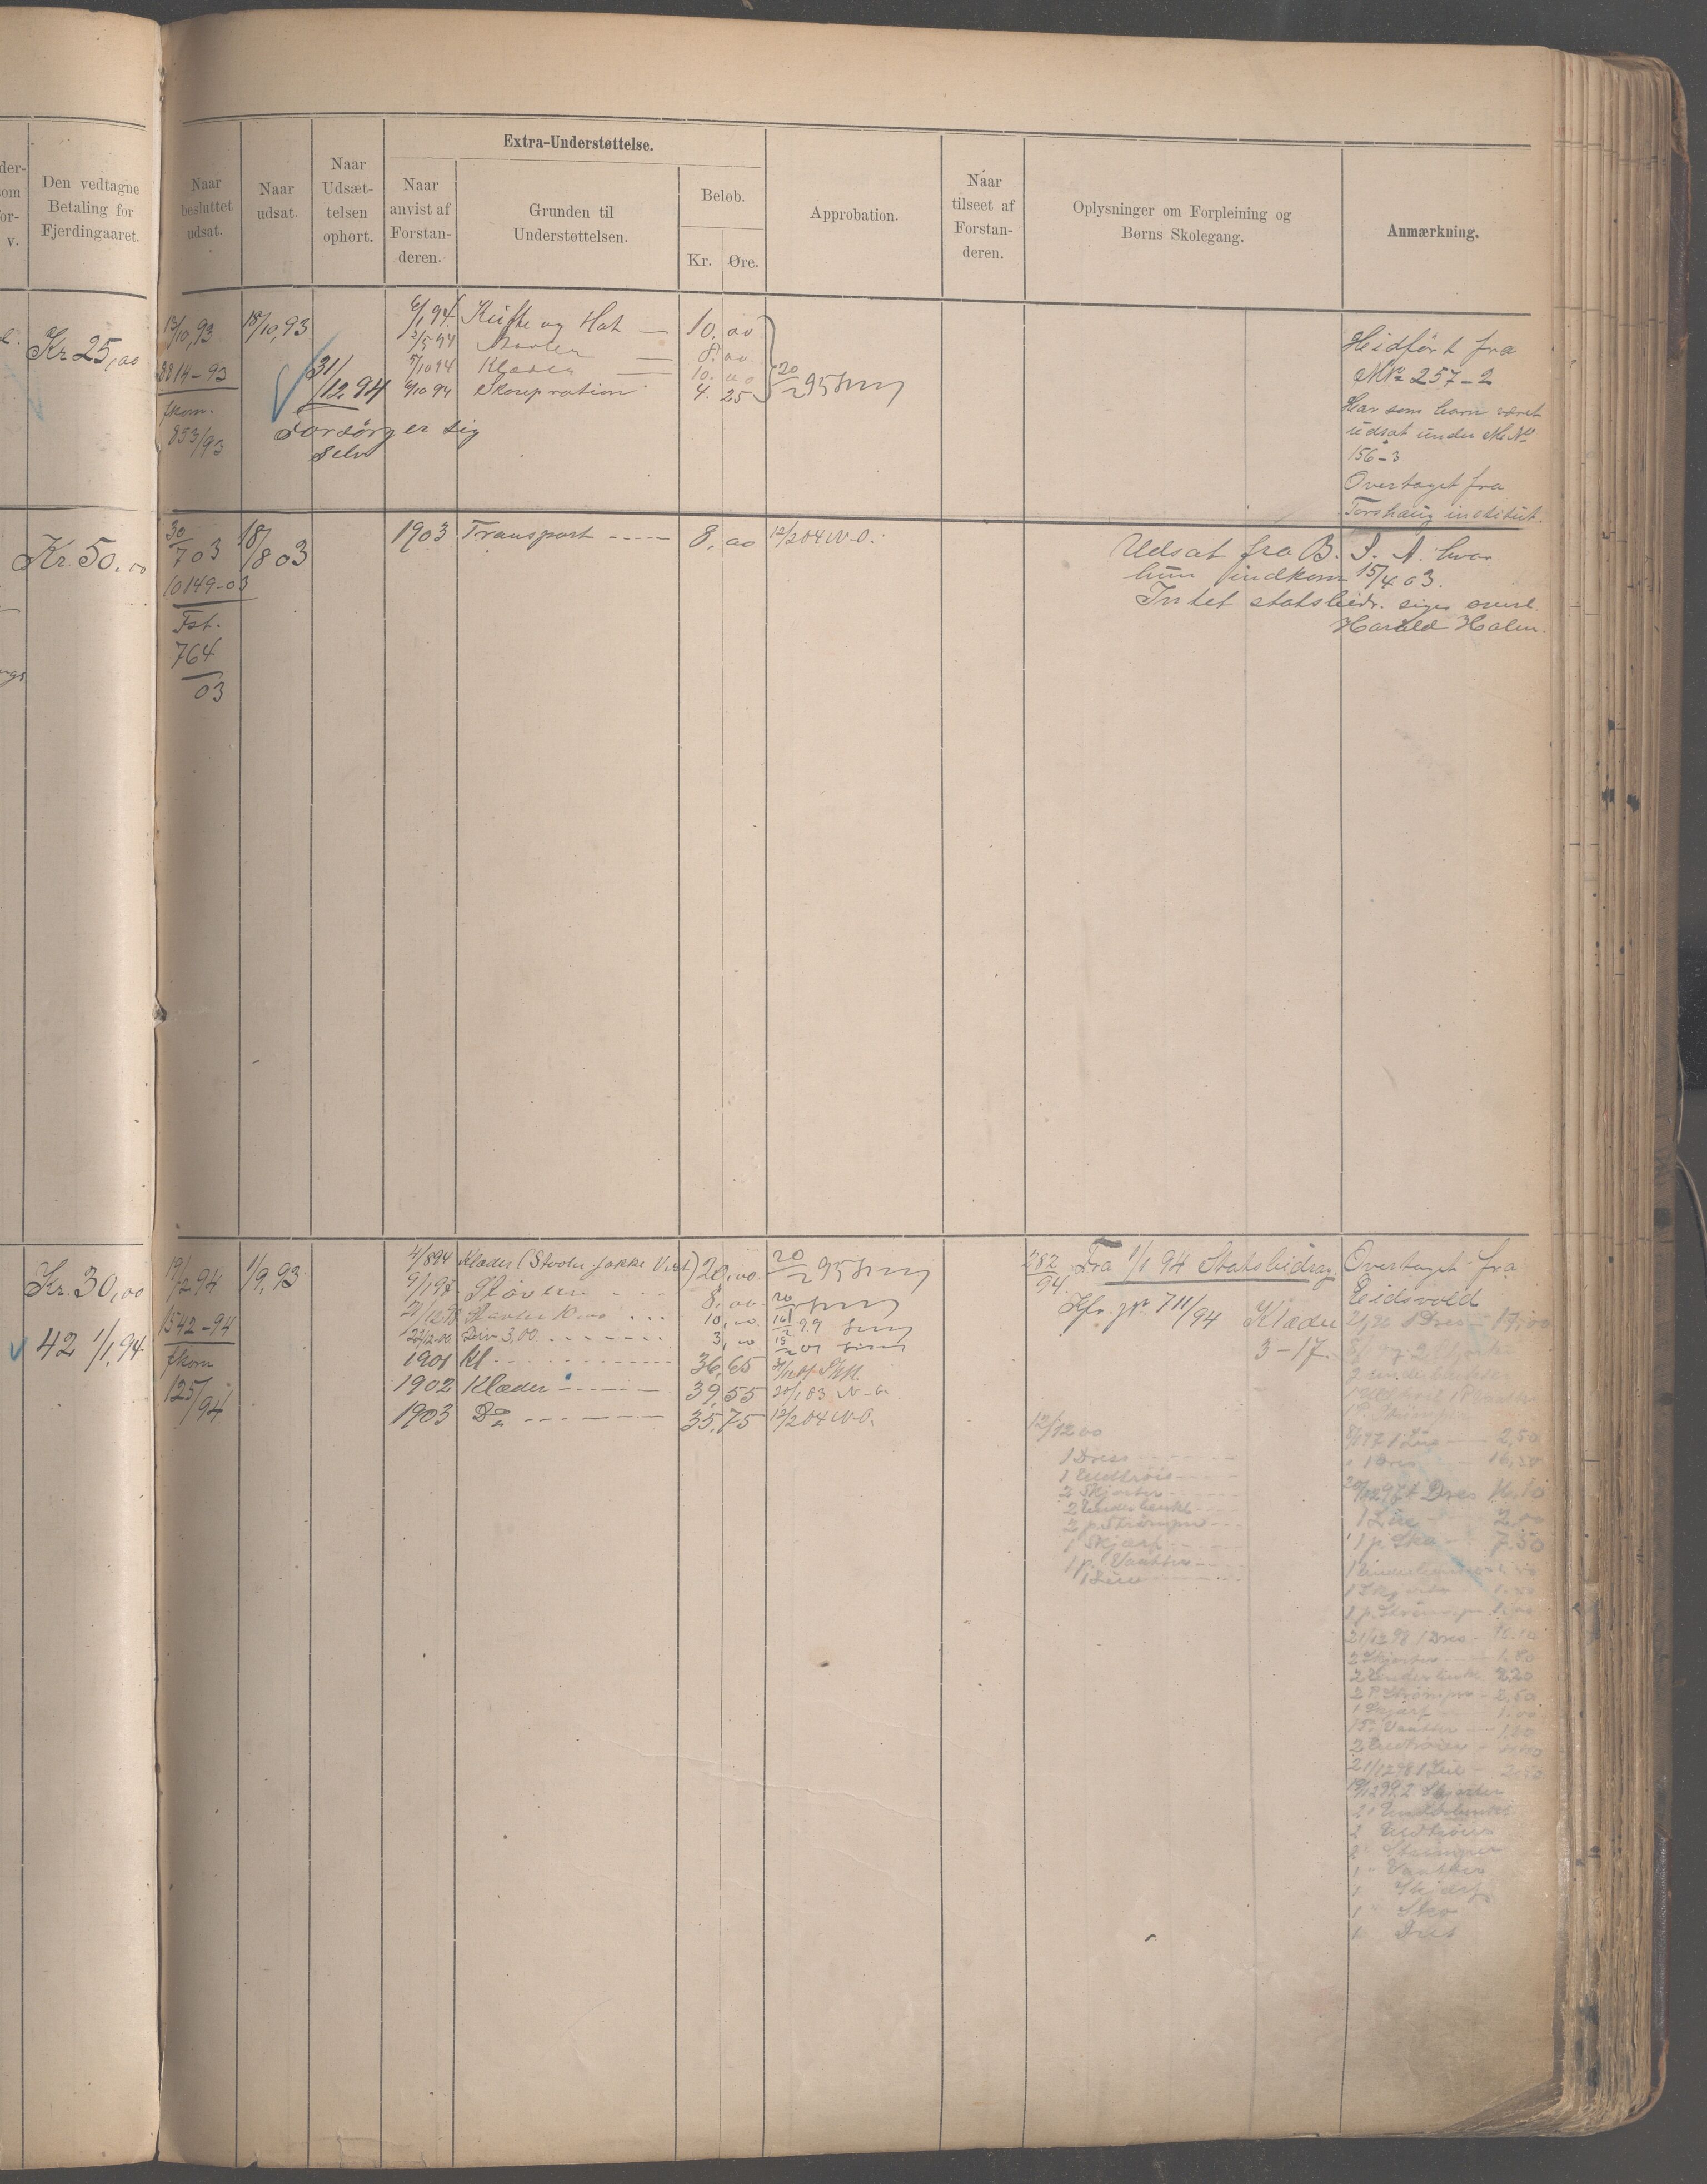 Den vedtagne
Betaling for
Fjerdingaaret.
Naar
besluttet
udsat.
Naar
udsat.
Naar
Udsæt-
telsen
ophørt.
Extra-Understøttelse.
Naar
anvist af
Forstan-
deren.
Grunden til
Understøttelsen.
Beløb.
Kr. Øre.
Approbation.
Naar
tilseet af
Forstan-
deren.
Oplysninger om Forpleining og
Børns Skolegang.
Anmærkning.
Kr 25,00
13/10,93
3814-93
fkom.
853/93
18/10,93
31/12 94
Forsörger sig
selv
6/1 94 og Hat — 10. 00
2/5 94 — 8. 00
5/10 94 Klæder — 10. 00
6/10 94 Skoreparation 4. 25
20/2 95
Heidført fra
M.No 257-2
Har som barn været
udsat under M.No
156-3
Overtaget fra
Torshaug institut.
Kr. 50.00
30/7 03
10149-03
Fst.
764
03
18/8 03
1903 Transport ----- 8,00 12/2 04 N-O.
Udsat fra B. S. A. hvor
hun indkom 15/4 03.
Intet statsbidr. siger
Harald Holm.
Kr. 30,00
42 1/1,94
19/2 94
1542-94
fkom
125/94
1/9,93
4/8 94 Klæder (Støvler Jakke Vest) 20,00 20/2 95
9/1 95 Støvler 8,00 20/2
21/12 98 Støvler 10,00 10,00 16/2 99
22/12 00 Div 3,00 3,00 15/2 01
1901 Kl 36,65
1902 Klæder 39,55 20/1 03 N-O.
1903 Do 35,75 12/2 04 N-O.
282/94 Fra 1/1 94 Statsbidrag
Kfr. jr. 711/94
Klæder
3-17.
12/12 00
1 Dress
1 Uldtrøie
2 Skjorter
2 Underbenkl
2 p. Strømper
1 Skjærf
1 p. Vaatter
1 Lue
Overtaget fra
Eidsvold
1 Dres - 17,00
2 Skjorter
2 underbukser
8/1 97 1 Lue 2,50
1 Dres 16,50
1 Dres 16.10
1 Lue 2,00
1 p. Sko 7.50
1 Skjorte
1 p. Strømper 1.00
21/12 98 1 Dres 16.10
2 Skjorter 1.80
2 Underbukl 2.20
2 P. Strømper 2,50
1 Skjærf 1.00
1 P. Vaatter 1.20
2 Uldtrøier
21/12 98 1 Lue
19/12 99 2 Skjorter
2 Underbukser
2 Uldtrøier
2 " Strømper
1 " Vaatter
1 Skjærf
1 " Sko
1 Dres